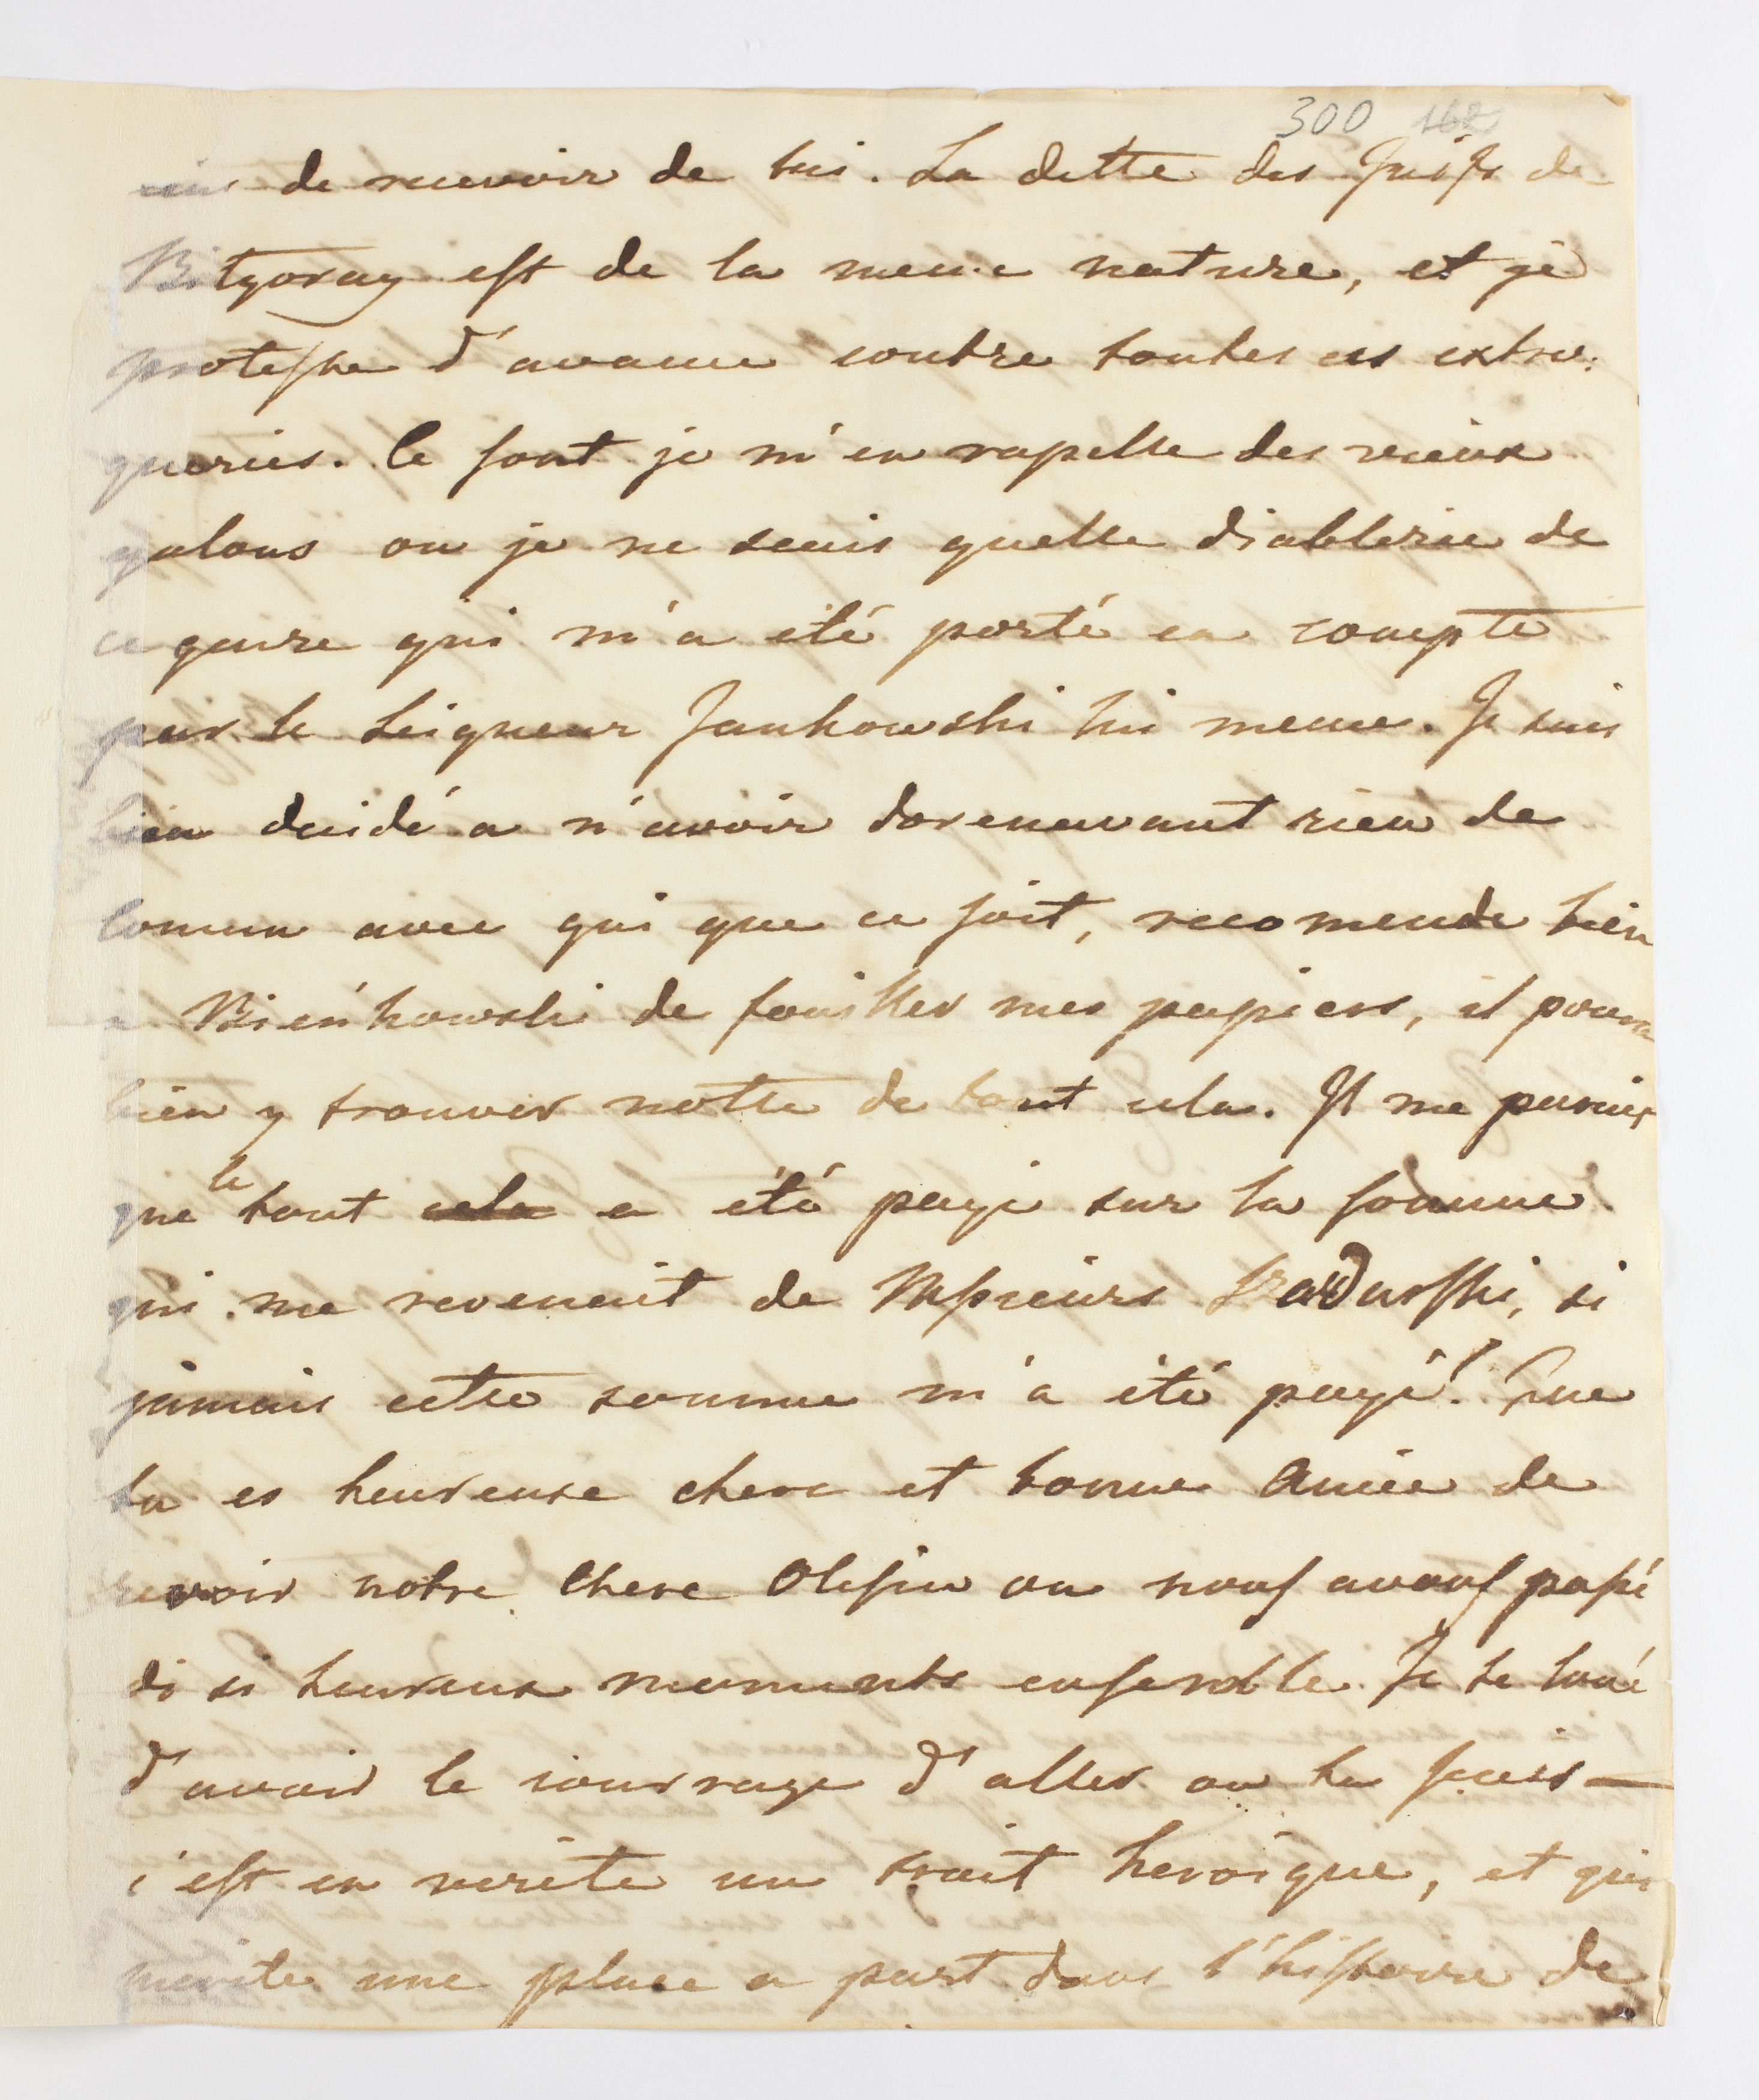 300 162
de recevoir de lui. La dette des Juifs de
Bitgoray est de la meme nature, et je
proteste d'avance contre toutes ces extra:
queries. Ce sont je m'en rapelle des vieux
galons ou je ne scais quelle diablerie de
ce genre qui m'a été porté en compte
par le Seigneur Jankowski lui meme. Je suis
bien decidé a n'avoir dorenavant rien de
Comun avec qui que ce soit, recomende bien
a Bieńkowski de fouiller mes papiers, il pourra
bien y trouver notte de tout cela. Il me parait
que le tout cela a été payé sur la somme
qui me revenait de Messieurs si
jamais cette somme m'a été payé! Que
tu es heureuse chere et bonne Amie de
revoir notre chere Olesin ou nous avons passé
de si heureux moments ensemble. Je te loue
d'avoir le courrage d'aller ou tu scais —
c'est en verite un trait heroique, et qui
merite une place a part dans l'histoire de